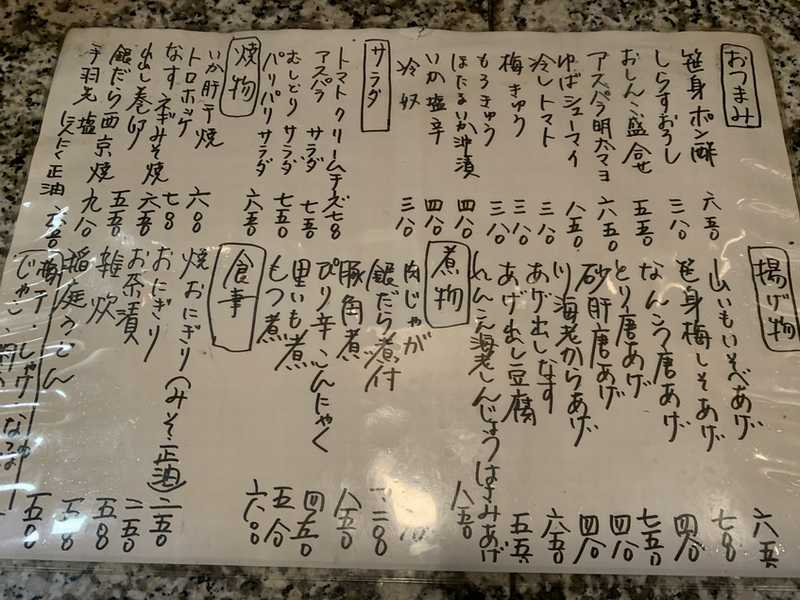 おつまみ
笹身ポン酢 六五〇
しらすおろし 三八〇
おしんこ盛合せ 五五〇
アスパラ明太マヨ 六五〇
ゆばシューマイ 八五〇
冷しトマト 三八〇
梅きゅう 三八〇
もろきゅう 三八〇
ほたるいか沖漬 四八〇
いか塩辛 四八〇
冷奴 三八〇
サラダ
トマトクリームチーズ 七八〇
アスパラサラダ 七五〇
むしどりサラダ 七五〇
パリパリサラダ 六五〇
焼物
いか肝干焼 六八〇
トロホッケ
なすネギみそ焼 七八〇
出し巻卵 六五〇
銀だら西京焼 九八〇
手羽先 塩 にんにく正油 六五〇
揚げ物
山いもいそべあげ 六五〇
笹身梅しそあげ 七八〇
なんこつ唐あげ 四八〇
とり唐あげ 七五〇
砂肝唐あげ 四八〇
川海老からあげ 四八〇
あげ出しなす 六五〇
あげ出し豆腐 五五〇
れんこん海老しんじょうはさみあげ 八五〇
煮物
肉じゃが
銀だら煮付
豚角煮 八五〇
ぴり辛こんにゃく 四五〇
里いも煮 五八〇
もつ煮 六〇〇
食事
焼おにぎり(みそ・正油) 二五〇
おにぎり 二五〇
お茶漬 五五〇
雑炊 五五〇
稲庭うどん